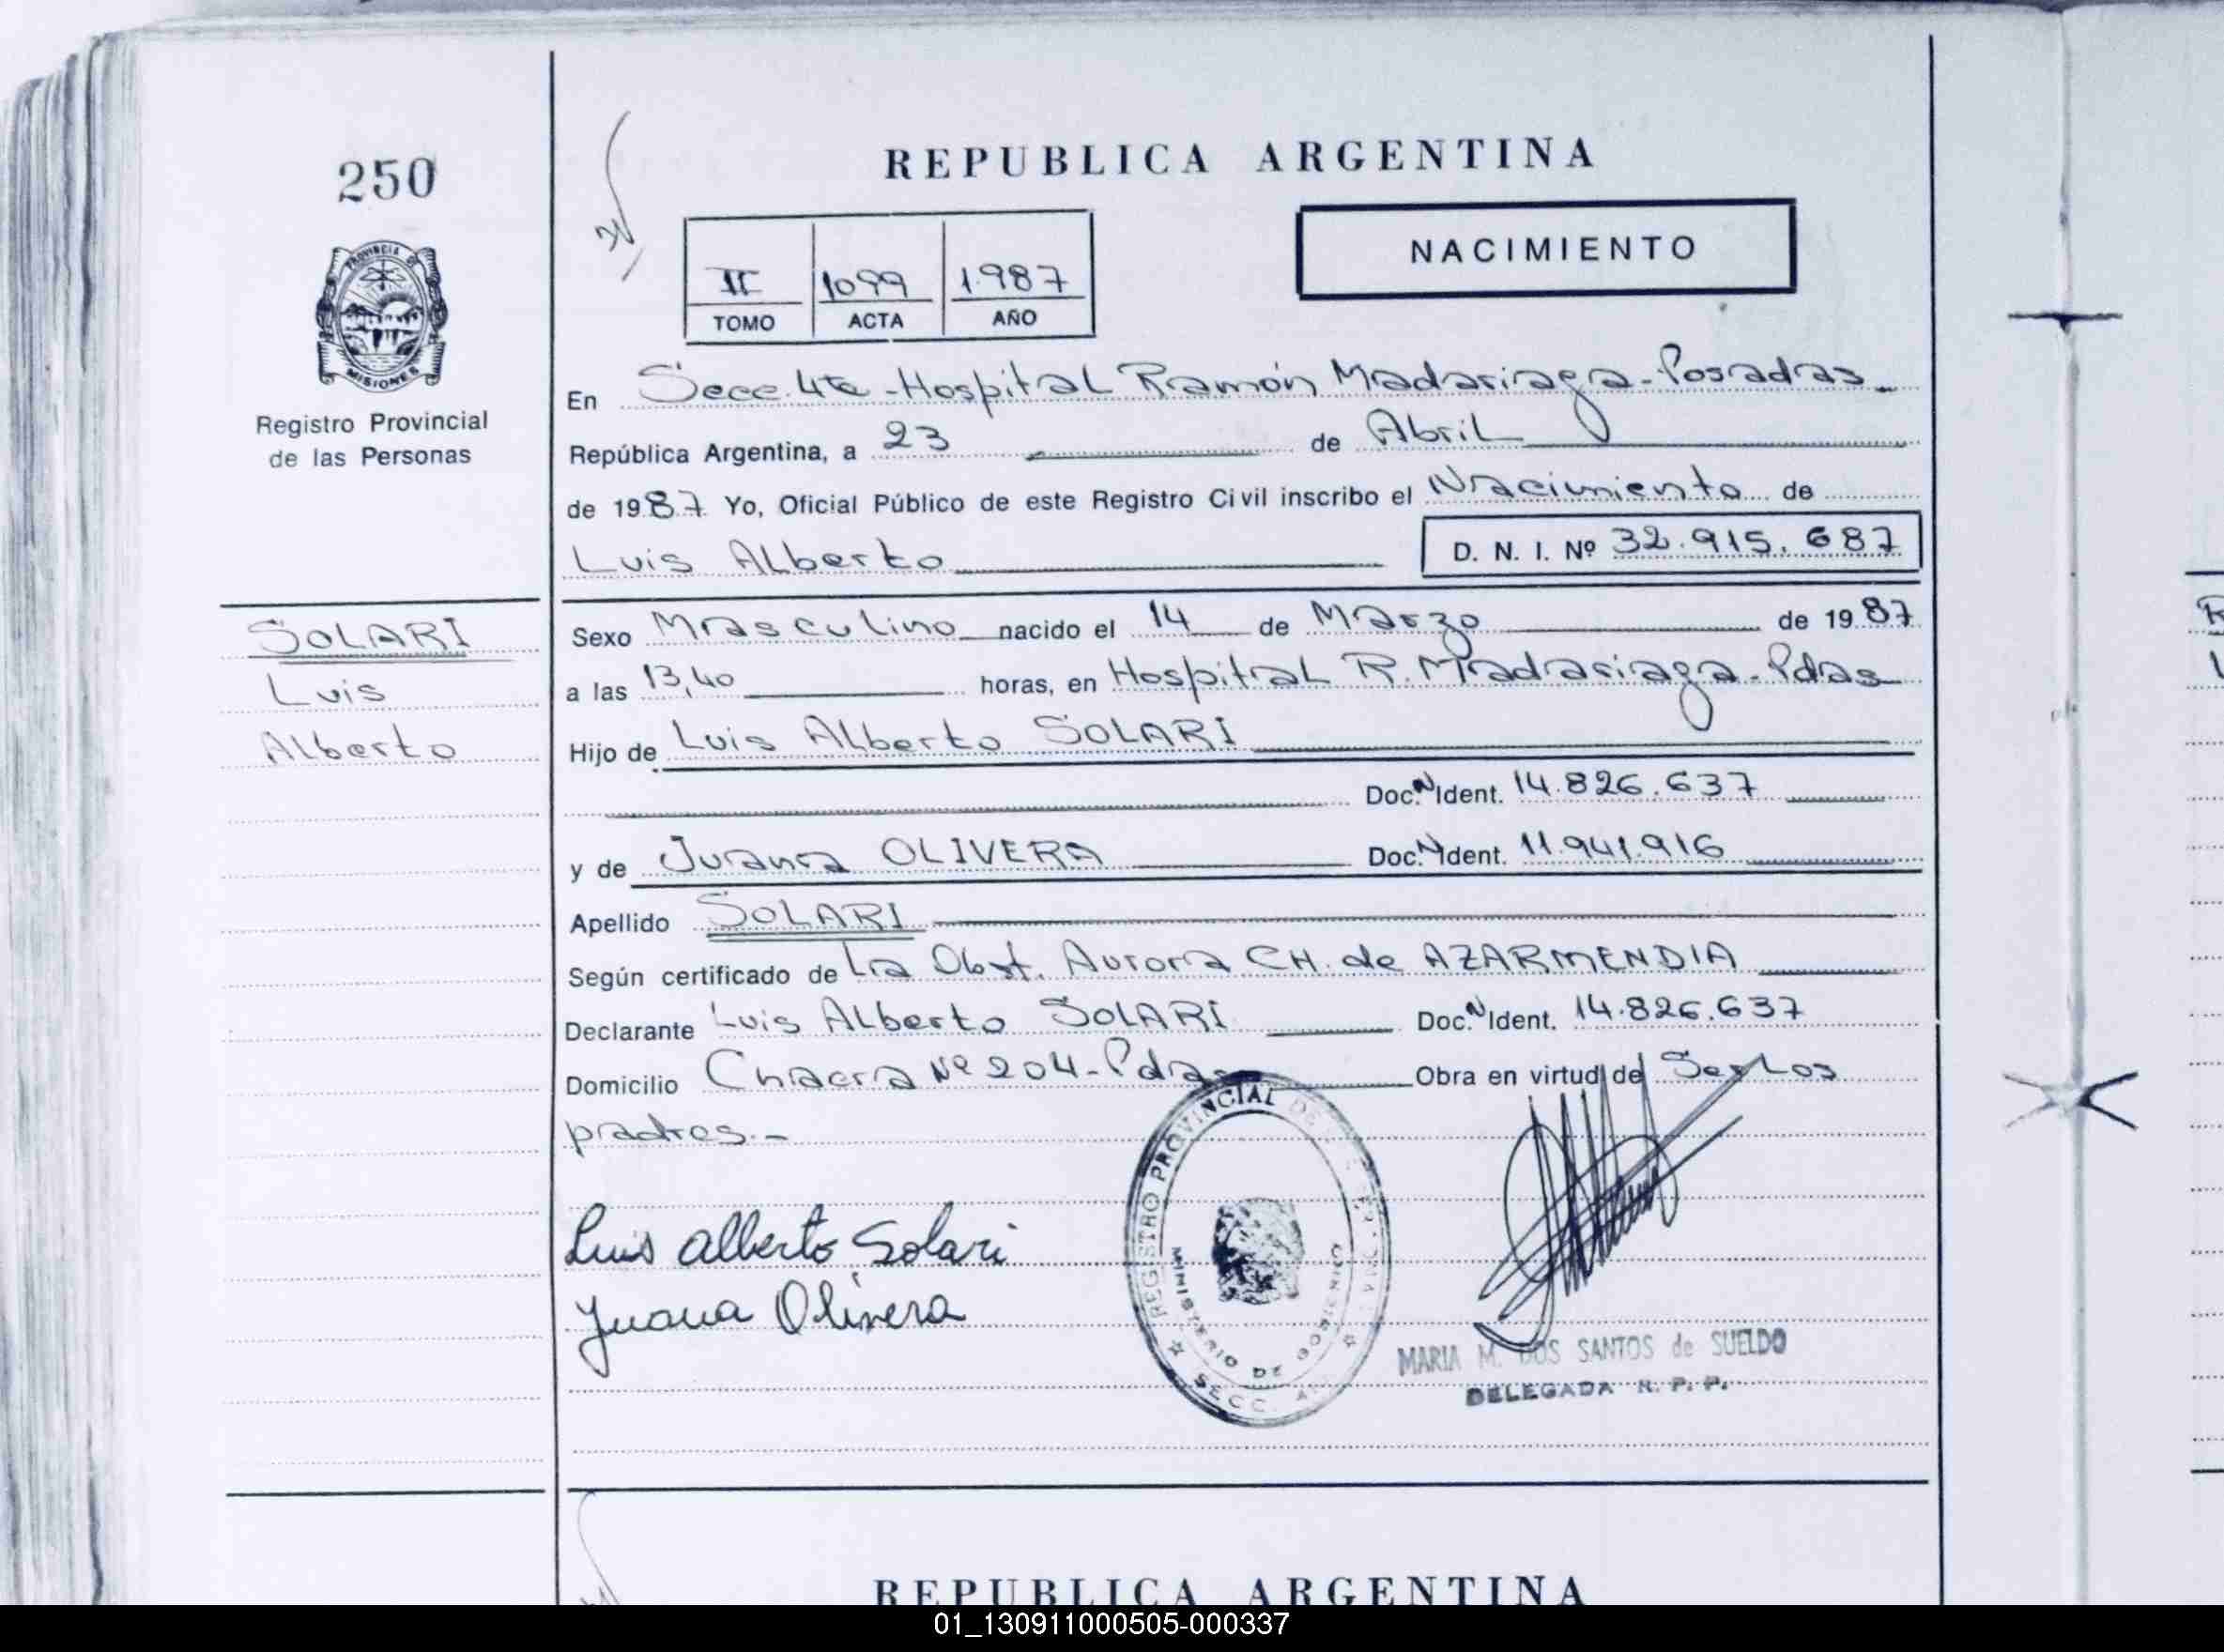 250
PROVINCIA DE
MISIONES
Registro Provincial
de las Personas
SOLARI
Luis
Alberto
REPUBLICA ARGENTINA
NACIMIENTO
II 1099 1987
TOMO ACTA AÑO
En Secc. 4ta - Hospital Ramón Madariaga - Posadas
República Argentina, a 23 de Abril
de 1987 Yo, Oficial Público de este Registro Civil inscribo el Nacimiento de
Luis Alberto D. N. I. Nº 32.915.687
Sexo Masculino nacido el 14 de Marzo de 1987
a las 13,40 horas, en Hospital R. Madariaga - Pdas
Hijo de Luis Alberto SOLARI
Doc. N Ident. 14.826.637
y de Juana OLIVERA Doc. N Ident. 11.941.916
Apellido SOLARI
Según certificado de La Obst. Aurora CH. de AZARMENDIA
Declarante Luis Alberto SOLARI Doc. N Ident. 14.826.637
Domicilio Chacra Nº 204 - Pdas Obra en virtud de Ser Los
padres.-
Luis Alberto Solari
Juana Olivera
REGISTRO PROVINCIAL DE
MINISTERIO DE GOBIERNO
SECC.
MARIA M. DOS SANTOS de SUELDO
DELEGADA R. P. P.
REPUBLICA ARGENTINA
01_130911000505-000337